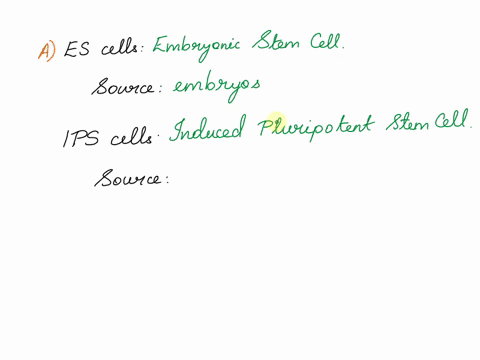 A) ES cells: Embryonic Stem Cell.
Source: embryos
IPS cells. Induced Pluripotent Stem Cell.
Source: